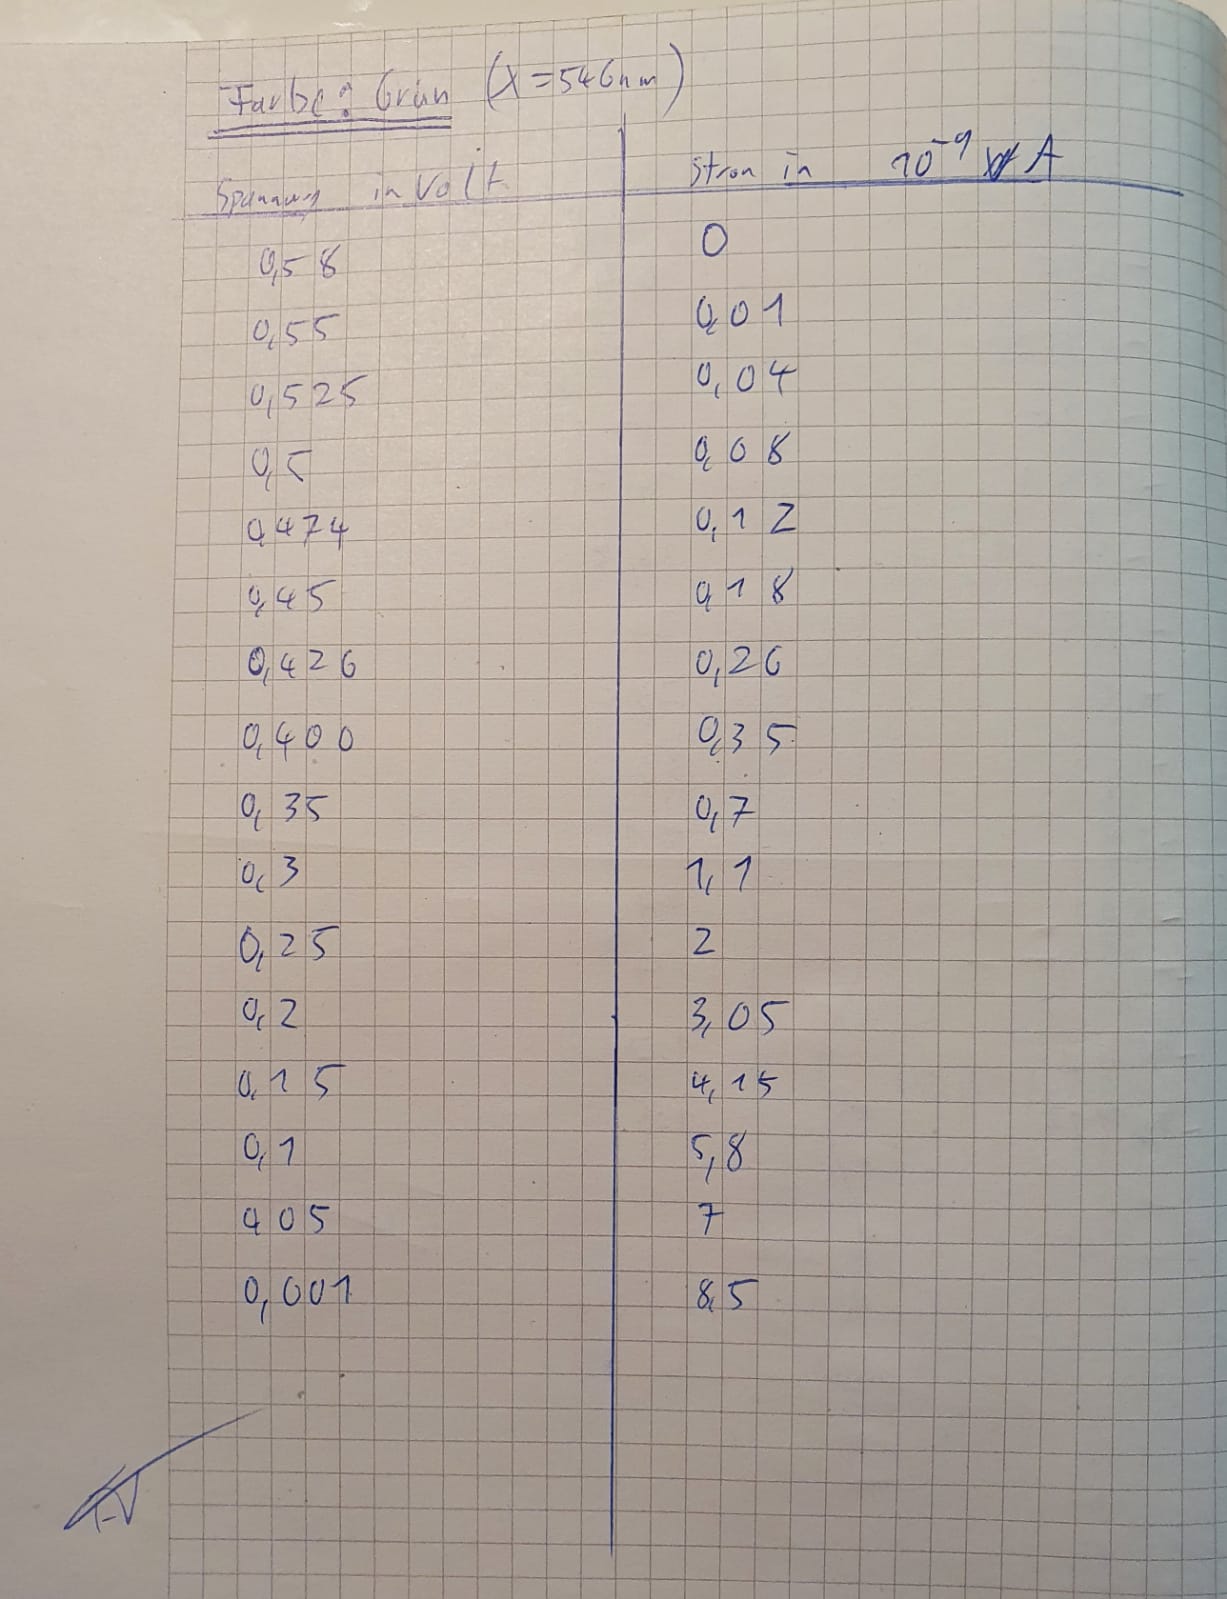 Farbe: Grün (λ=546nm)
Spannung in Volt	Strom in 10⁻⁹ A
0,58	0
0,55	0,01
0,525	0,04
0,5	0,08
0,474	0,12
0,45	0,18
0,426	0,26
0,400	0,35
0,35	0,7
0,3	1,1
0,25	2
0,2	3,05
0,15	4,15
0,1	5,8
0,05	7
0,001	8,5